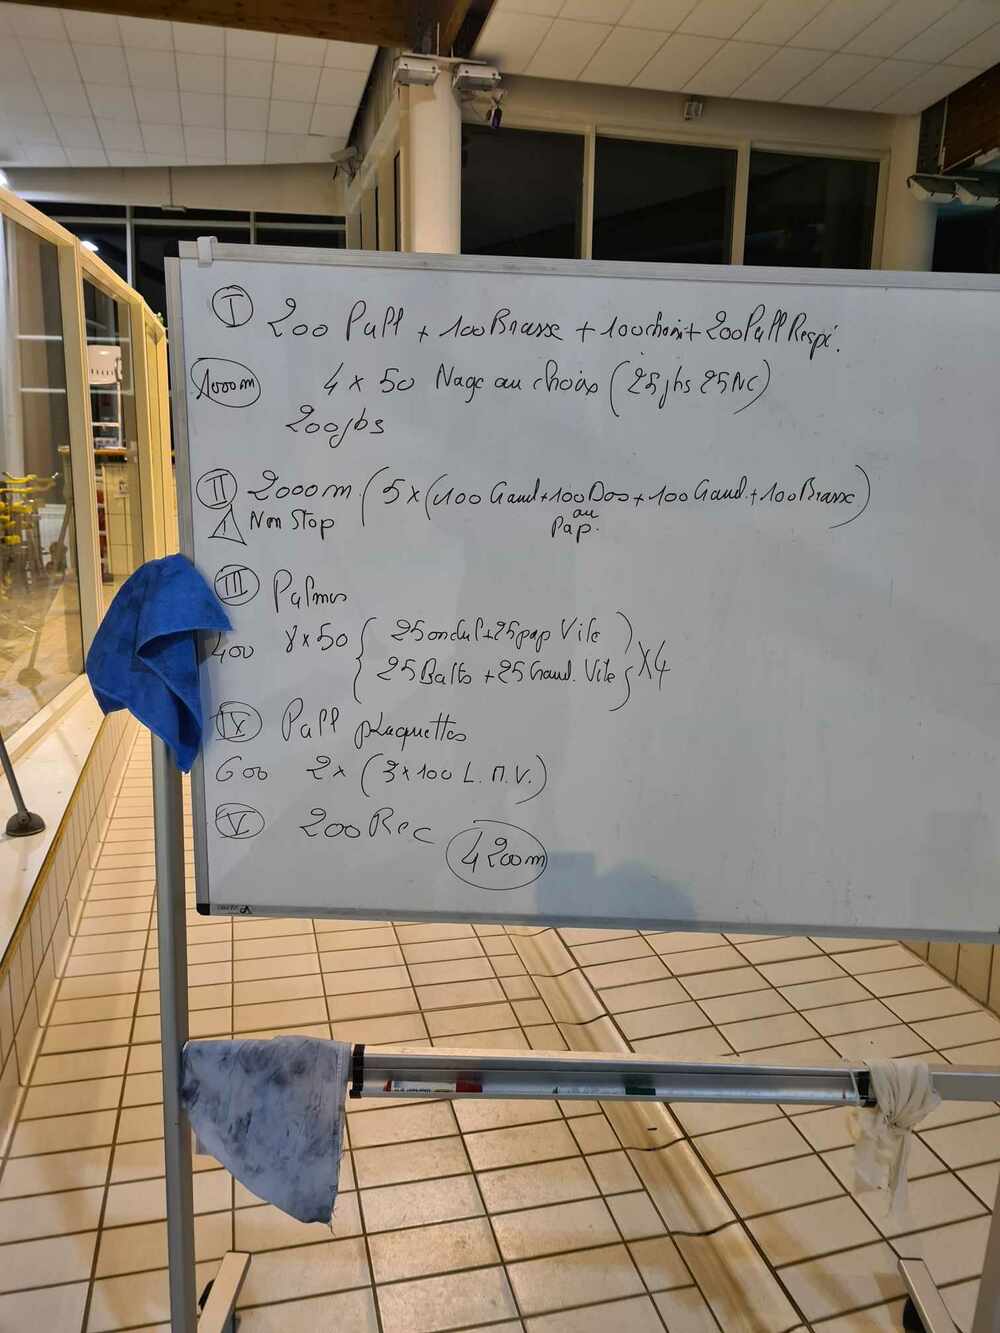 I 200 Pull + 100 Brasse + 100 choix + 200 Pull Respi.
1000m 4 x 50 Nage au choix (25 jbs 25 NC)
200 jbs
II 2000m (5 x (100 Gand + 100 Dos + 100 Gand. + 100 Brasse)
! Non Stop ou
Pap.
III Palmes
400 8 x 50 { 25 ondul + 25 pap Vite
25 Balto + 25 Grand. Vite } X4
IV Pull plaquettes
600 2 x (3 x 100 L. M. V.)
V 200 Rec
4200m